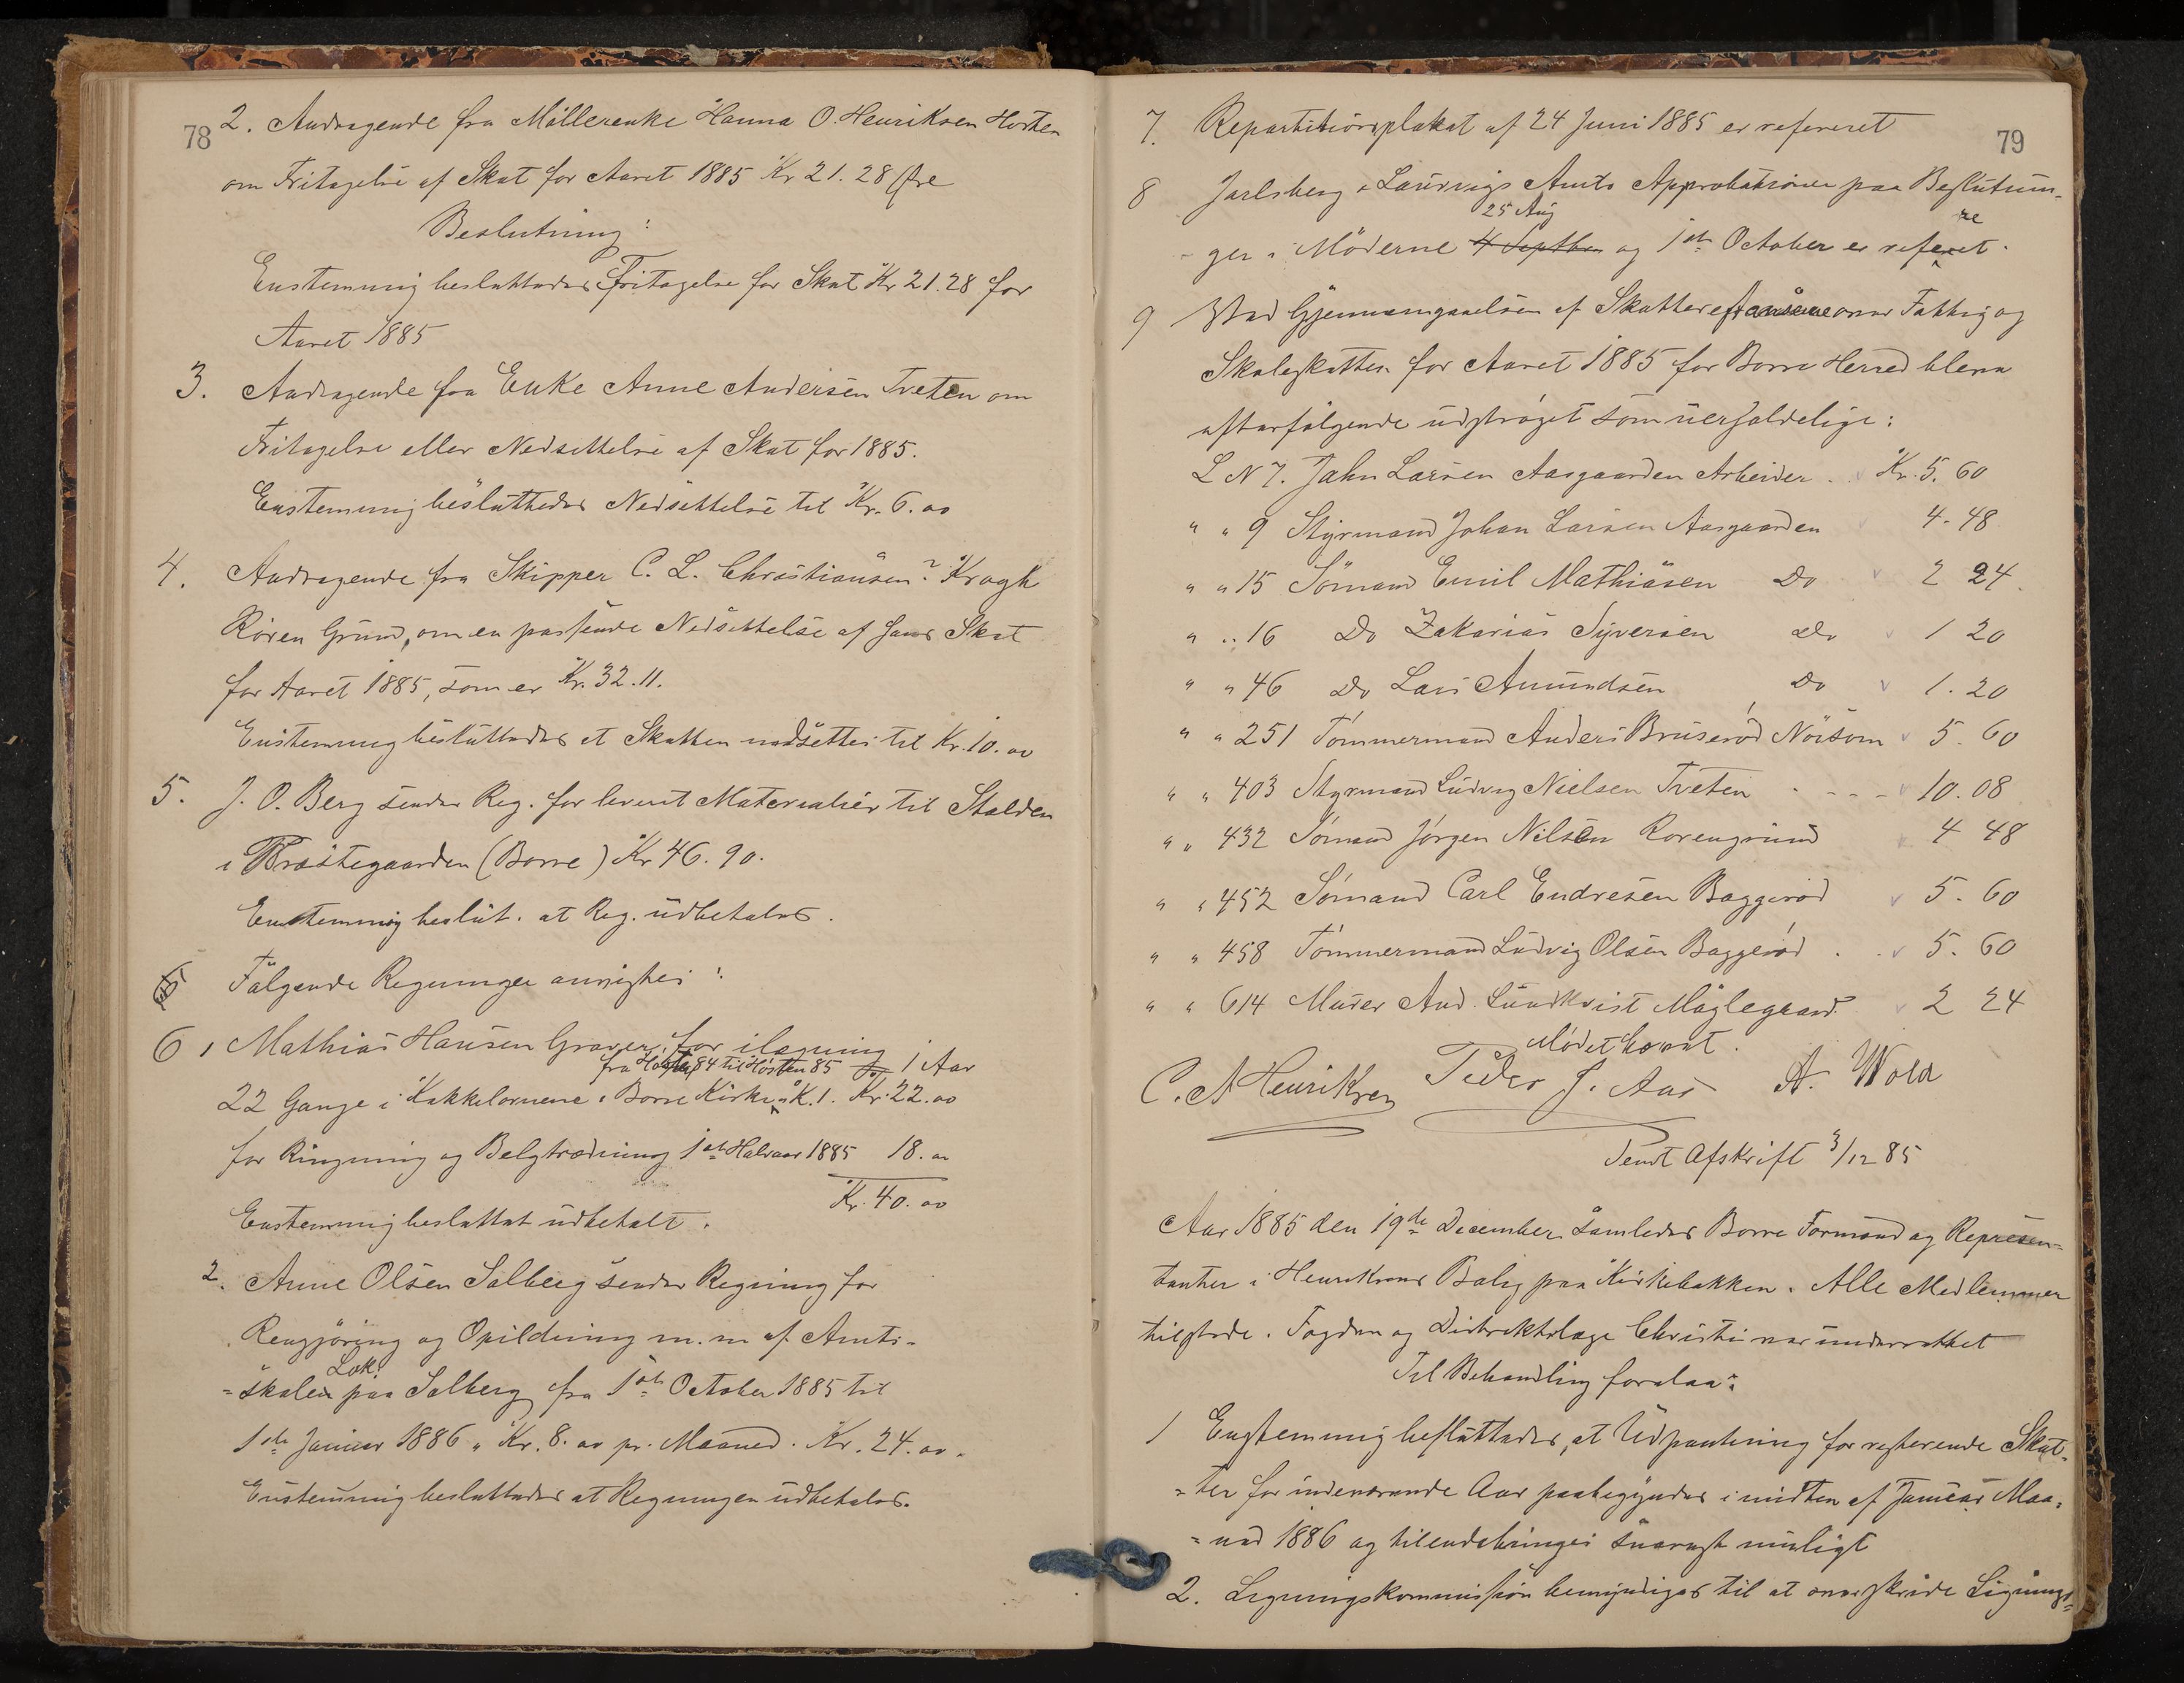 78
2. Andragende fra Möllerenke Hanna O. Henriksen Horten
om Fritagelse af Skat for Aaret 1885 Kr 21.28 Øre
Beslutning:
Enstemmig besluttedes Fritagelse for Skat Kr 21.28 for
Aaret 1885
3. Andragende fra Enke Anne Andersen Tveten om
Fritagelse eller Nedsettelse af Skat for 1885.
Enstemmig besluttedes Nedsettelse til Kr. 6.00
4. Andragende fra Skipper C. L. Christiansen? Kragh
Rören Grund, om en passende Nedsettelse af hans Skat
for Aaret 1885, som er Kr. 32.11.
Enstemmig besluttedes at Skatten nedsettes til Kr. 10.00
5. J. O. Berg sender Reg. for leveret Materialier til Stalden
i Præstegaarden (Borre) Kr 46.90.
Enstemmig beslut. at Reg. udbetales.
Fölgende Regninger anvistes:
6 1 Mathias Hansen Graver, for ilægning
fra Hösten 84 til Hösten 85 1 Aar
22 Gange i Kakkelovnene i Borre Kirke à K. 1. Kr. 22.00
for Ringning og Belgtrædning 1ste Halvaar 1885 18.00
Kr. 40.00
Enstemmig besluttet udbetalt.
2. Anne Olsen Solberg sender Regning for
Rengjöring og Opildning m. m af Amts-
Lok.
=skolen paa Solberg fra 1ste October 1885 til
1ste Januar 1886 " Kr. 8.00 pr. Maaned. Kr. 24.00.
Enstemmig besluttedes at Regningen udbetales.
79
7. Repartitionsplakat af 24 Juni 1885 er refereret
8 Jarlsberg & Laurvigs Amts Approbationer paa Beslutnin-
25 Aug re
-ger i Möderne 4 Septbr og 1ste October er referet.
9 Ved Gjennemgaaelsen af Skatterestanserne over Fattig og
Skoleskatten for Aaret 1885 for Borre Herred bleve
efterfølgende udströget som uerholdelige:
L N 7. John Larsen Aasgaarden Arbeider . . Kr. 5.60
" " 9 Styrmand Johan Larsen Aasgaarden 4.48
" " 15 Sömand Emil Mathiasen Do 2 24.
" " 16 Do Zakarias Syversen Do 1 20
" " 46 Do Lars Amundsen Do 1.20
" " 251 Tömmermand Anders Bruseröd Nöisom 5.60
" " 403 Styrmand Ludvig Nielsen Tveten . - - - 10.08
" " 432 Sömand Jörgen Nilsen Rorengrund 4 48
" " 452 Sömand Carl Endresen Baggeröd 5.60
" " 458 Tömmermand Ludvig Olsen Baggeröd . . 5.60
" " 614 Murer And. Lundkvist Möglegaard 2 24
Mödet hævet.
C. A Henriksen Peder J. Aas A. Wold
Sendt Afskrift 3/12 85
Aar 1885 den 19de December samledes Borre Formænd og Represen=
tanter i Henriksens Bolig paa Kirkebakken. Alle Medlemmer
tilstede. Fogden og Distriktslæge Christie var underrettet
Til Behandling forelaa:
1 Enstemmig besluttedes, at Udpantning for resterende Skat-
=ter for indeværende Aar paabegyndes i midten af Januar Maa-
=ned 1886 og tilendebringes snarest muligt
2. Ligningskommission bemyndiges til at overskride Lignings=